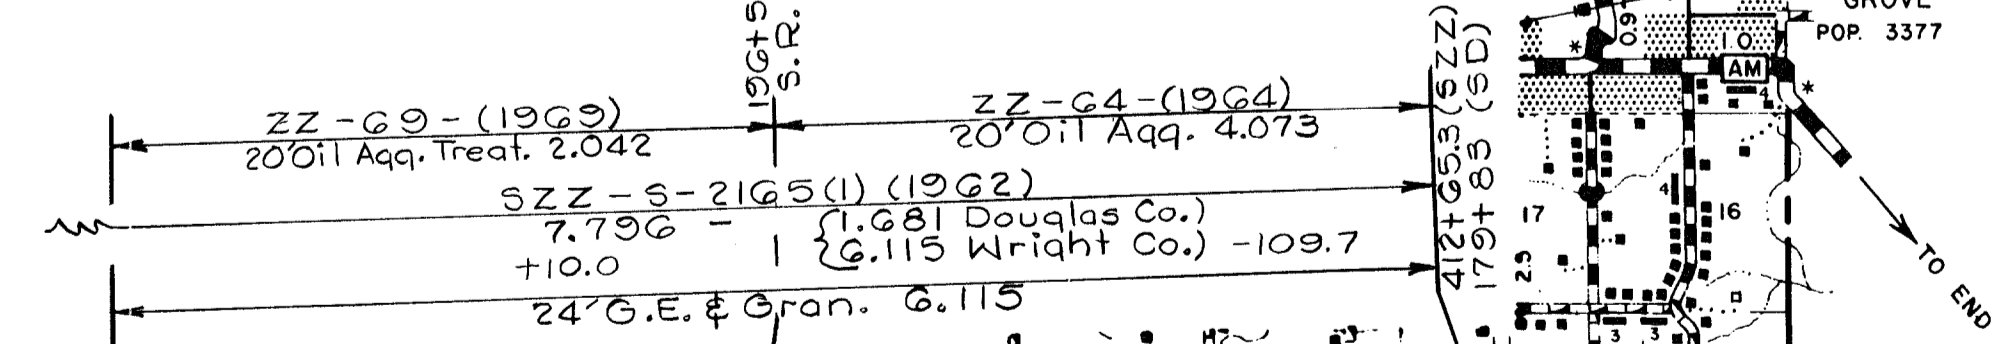 196+5
S.R.
ZZ-69-(1969)
20'Oil Agg. Treat. 2.042
ZZ-64-(1964)
20'Oil Agg. 4.073
SZZ-S-2165(1) (1962)
7.796 - {1.681 Douglas Co.)
{6.115 Wright Co.) -109.7
+10.0
24' G.E. & Gran. 6.115
412+65.3 (SZZ)
179+83 (SD)
GROVE
POP. 3377
0.9
*
1.0
AM
*
4
4
17
16
2.9
3
3
TO END